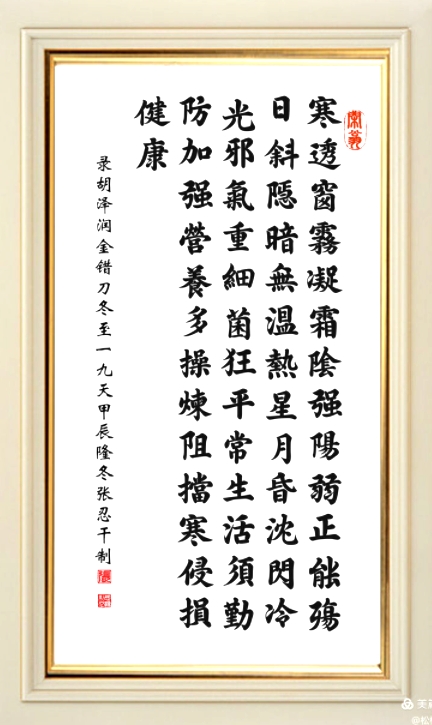 寒透窗霧凝霜陰强陽弱正能殤
日斜隱暗無温熱星月昏沈閃冷
光邪氣重細菌狂平常生活須勤
防加强營養多操煉阻擋寒侵損
健康
录胡泽润金错刀冬至一九天甲辰隆冬张忍干制